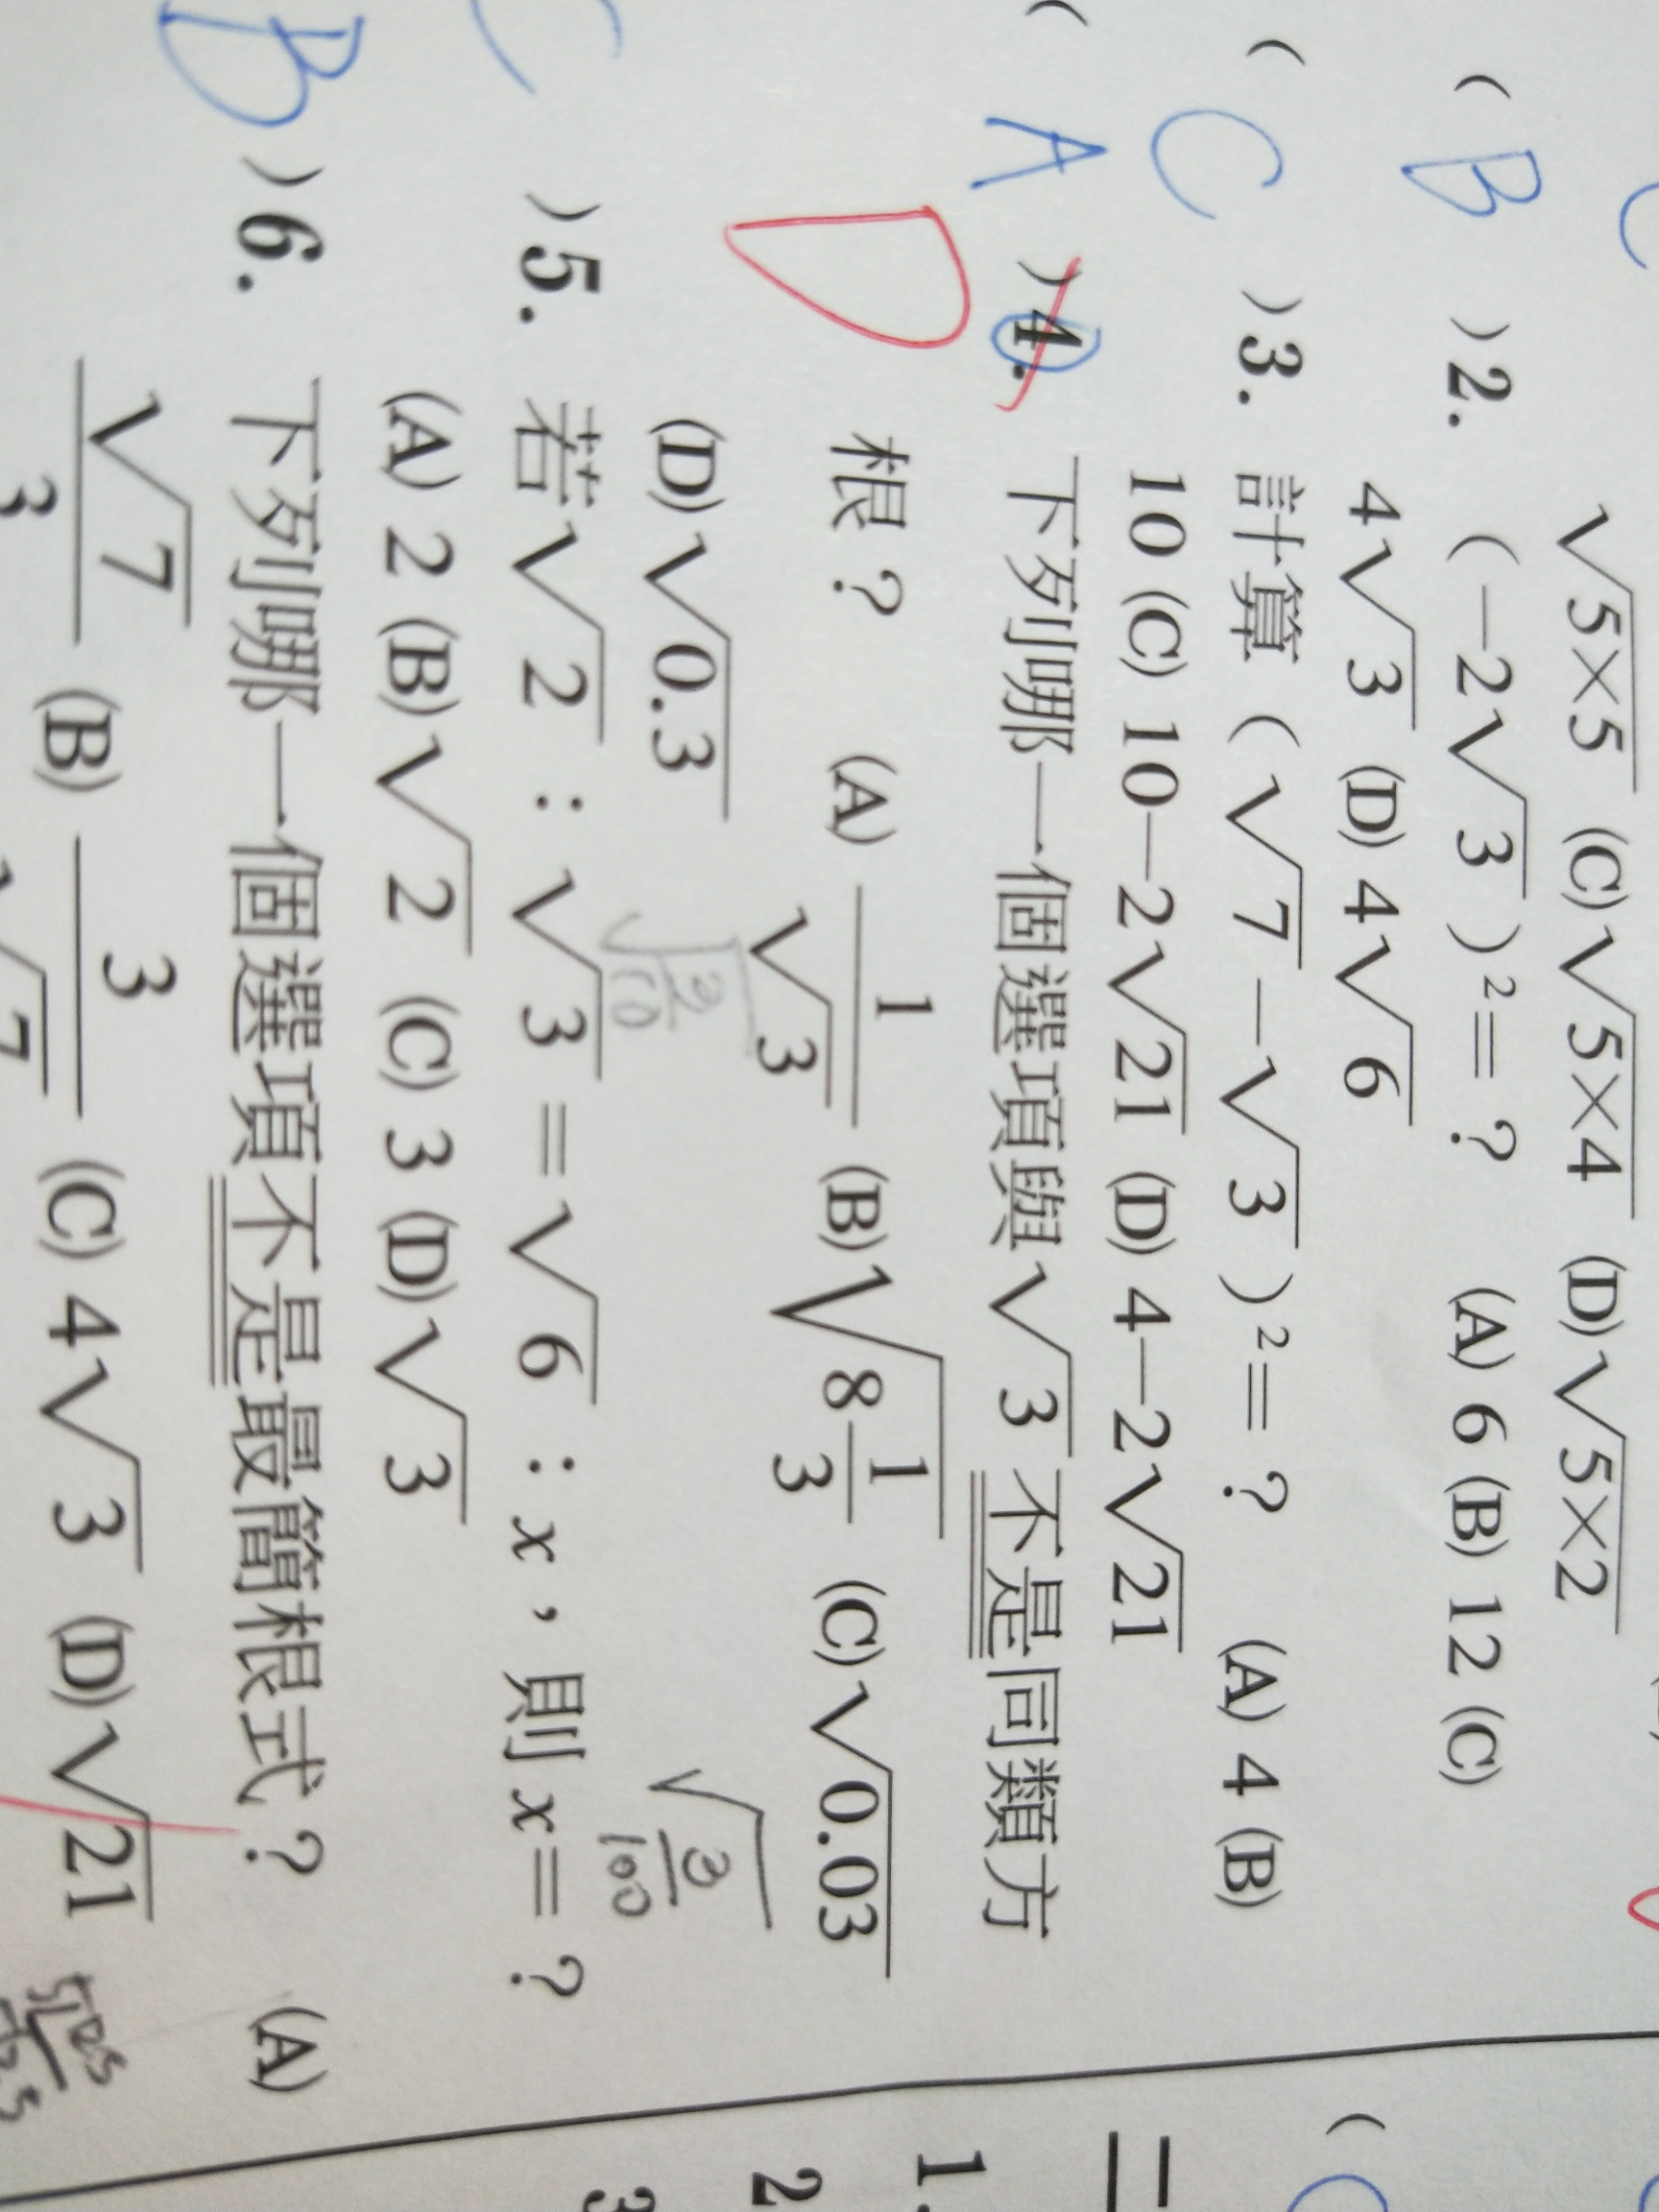 √5×5 (C)√5×4 (D)√5×2
( B )2. (-2√3)²=? (A) 6 (B) 12 (C)
4√3 (D) 4√6
( C )3. 計算(√7-√3)²=? (A) 4 (B)
10 (C) 10-2√21 (D) 4-2√21
( A )4. 下列哪一個選項與√3不是同類方
D 根? (A) 1/√3 (B)√8 1/3 (C)√0.03
(D)√0.3 √3/10 √3/100
C )5. 若√2:√3=√6:x,則x=?
(A) 2 (B)√2 (C) 3 (D)√3
B )6. 下列哪一個選項不是最簡根式? (A)
√7/3 (B) 3/√7 (C) 4√3 (D)√21
二
1.
2
3